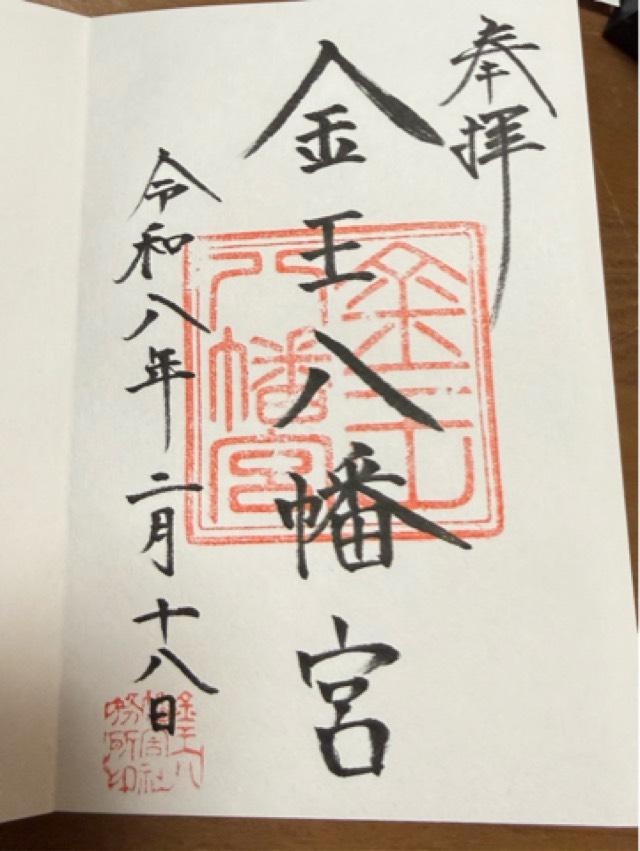 奉拝
金王八幡宮
令和八年二月十八日
金王
八幡宮
金王八
幡宮社
務所印